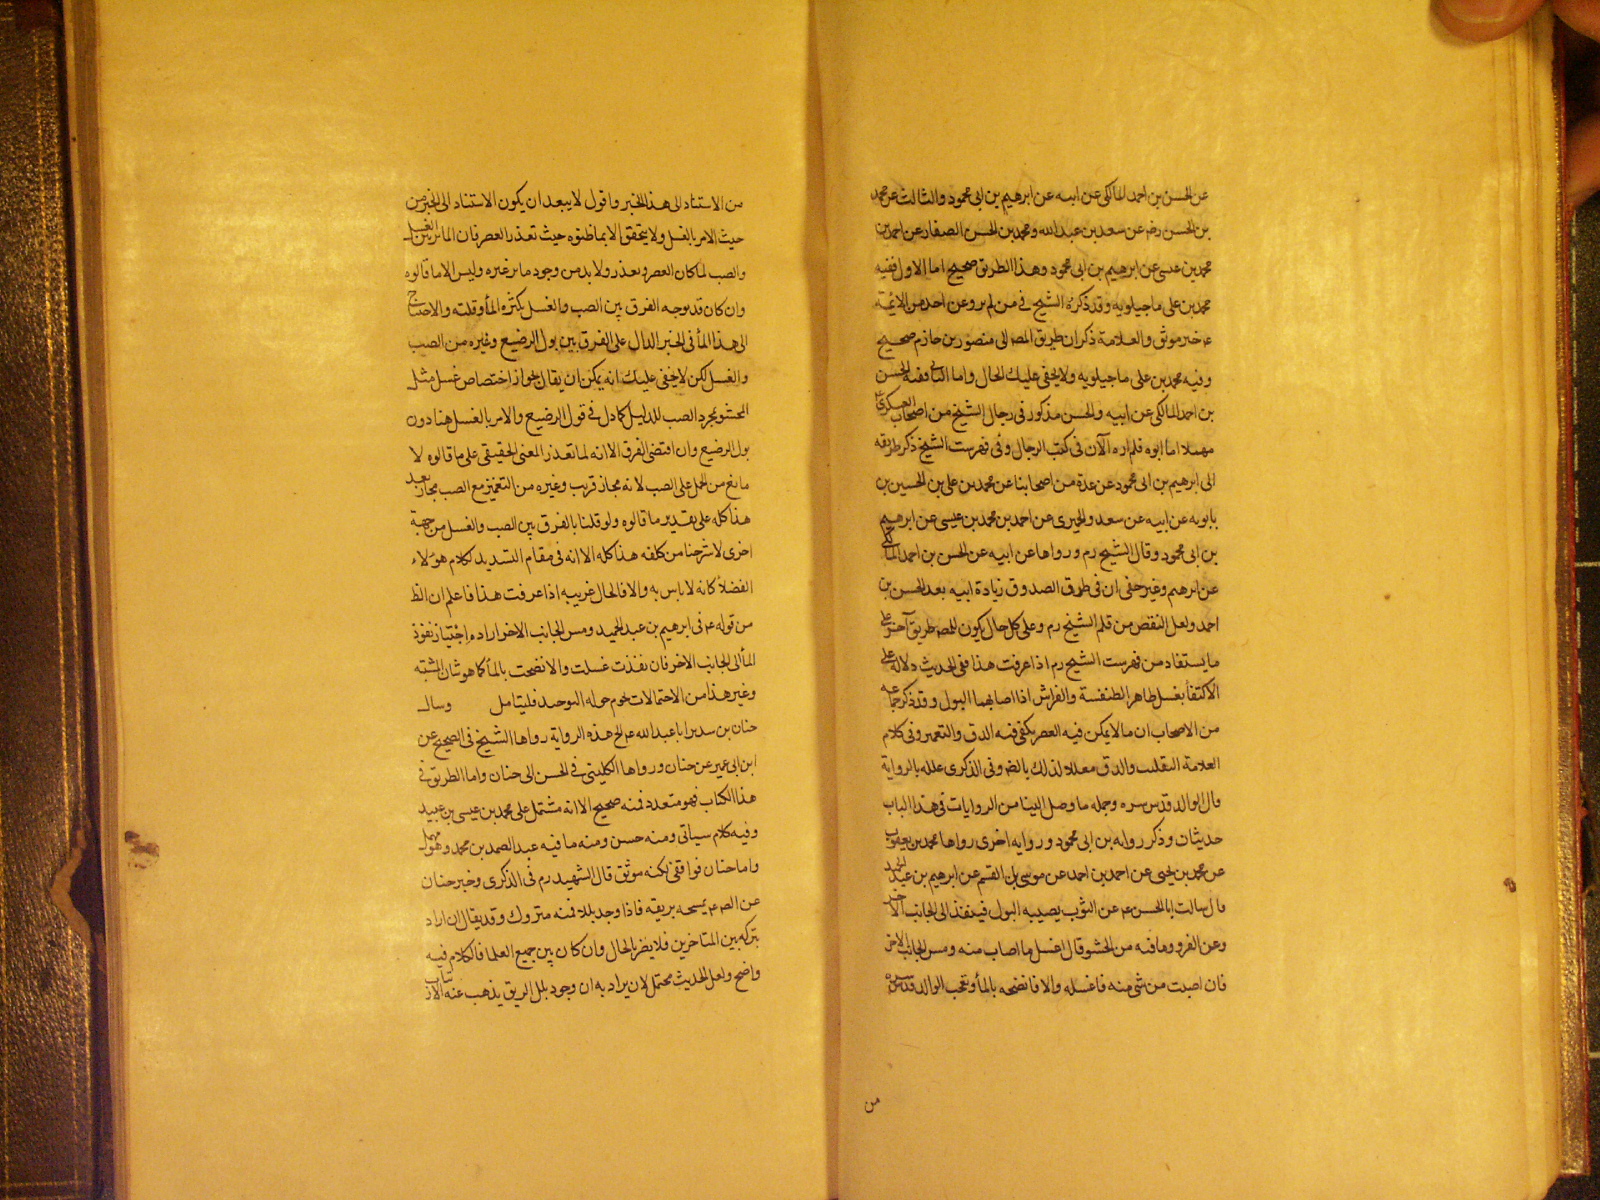 عن الحسن بن احمد المالكى عن ابيه عن ابرهيم بن ابى محمود والثالث عن محمد
بن الحسن رضه عن سعد بن عبد الله ومحمد بن الحسن الصفار عن احمد بن
محمد بن عيسى عن ابرهيم بن ابى محمود وهذا الطريق صحيح اما الاول ففيه
محمد بن على ماجيلويه وقد ذكره الشيخ فى من لم يرو عن احد من الائمة
ع خبر موثق والعلامة ذكر ان طريق المصـ الى منصور بن حازم صحيح
وفيه محمد بن على ماجيلويه ولا يخفى عليك الحال واما الثانى ففيه الحسن
بن احمد المالكى عن ابيه والحسن مذكور فى رجال الشيخ من اصحاب العسكرى ع
مهملا اما ابوه فلم اره الآن فى كتب الرجال وفى فهرست الشيخ ذكر طريقه
الى ابرهيم بن ابى محمود عن عدة من اصحابنا عن محمد بن على بن الحسين بن
بابويه عن ابيه عن سعد والحميرى عن احمد بن محمد بن عيسى عن ابرهيم
بن ابى محمود وقال الشيخ رم ورواها عن ابيه عن الحسن بن احمد المالكى
عن ابرهيم وغير خفى ان فى طرق الصدوق زيادة ابيه بعد الحسن بن
احمد ولعل النقص من قلم الشيخ رم وعلى كل حال يكون للمصـ طريق آخر على
ما يستفاد من فهرست الشيخ رم اذا عرفت هذا ففى الحديث دلالة على
الاكتفأ بغسل ظاهر الطنفسة والفراش اذا اصابهما البول وقد ذكر جماعة
من الاصحاب ان ما لا يمكن فيه العصر يكفى فيه الدق والتغميز وفى كلام
العلامة التقليب والدق معللا لذلك بالضه وفى الذكرى علله بالرواية
قال الوالد قدس سره وجملة ما وصل الينا من الروايات فى هذا الباب
حديثان وذكر رواية بن ابى محمود ورواية اخرى رواها محمد بن يعقوب
عن محمد بن يحيى عن احمد بن احمد عن موسى بن القسم عن ابرهيم بن عبد الحميد
قال سالت ابا الحسن ع عن الثوب يصيبه البول فينفذ الى الجانب الآخر
وعن الفرو وما فيه من الحشو قال اغسل ما اصاب منه ومس الجانب الاخر
فان اصبت من شئ منه فاغسله والا فانضحه بالمأ وتعجب الوالد قدس سره
من
من الاستناد الى هذا الخبر واقول لا يبعد ان يكون الاستناد الى الخبر من
حيث الامر بالغسل ولا يتحقق الا بما ظنوه حيث تعذر العصر فان الماتر بين الغسل
والصب لما كان العصر وتعذر ولا بد من وجود ماتر غيره وليس الا ما قالوه
وان كان قد يوجه الفرق بين الصب والغسل بكثرة المأ وقلته والاحتياج
الى هذا المأ فى الخبر الدال على الفرق بين بول الرضيع وغيره من الصب
والغسل لكن لا يخفى عليك انه يمكن ان يقال بجواز اختصاص غسل مثل
الحشو بمجرد الصب للدليل كما دل فى قول الرضيع والامر بالغسل هنا دون
بول الرضيع وان اقتضى الفرق الا انه لما تعذر المعنى الحقيقى على ما قالوه لا
مانع من الحمل على الصب لانه مجاز قريب وغيره من التغميز مع الصب مجاز بعيد
هذا كله على تقدير ما قالوه ولو قلنا بالفرق بين الصب والغسل من جهة
اخرى لاسترحنا من كلفه هذا كله الا انه فى مقام التسديد لكلام هؤلاء
الفضلأ كانه لا باس به والا فالحال غريبه اذا عرفت هذا فاعلم ان الظ
من قوله ع فى ابرهيم بن عبد الحميد ومس الجانب الاخر اراده اختيار نفوذ
المأ الى الجانب الاخر فان نفذت غسلت والا نضحت بالمأ كما هو شان المشتبه
وغير هذا من الاحتمالات يحوم حوله التوحيد فليتامل وسال
حنان بن سدير ابا عبد الله ع الخ هذه الرواية رواها الشيخ فى الصحيح عن
ابن ابى عمير عن حنان ورواها الكلينى فى الحسن الى حنان واما الطريق فى
هذا الكتاب فهو متعدد فنه صحيح الا انه مشتمل على محمد بن عيسى بن عبيد
وفيه كلام سياتى ومنه حسن ومنه ما فيه عبد الصمد بن محمد وهو مهمل
واما حنان فواقفى لكنه موثق قال الشهيد رم فى الذكرى وخبر حنان
عن الصـ ع يمسحه بريقه فاذا وجد بللا فنه متروك وقد يقال ان اراد
بتركه بين المتاخرين فلا يضر بالحال وان كان بين جميع العلما فالكلام فيه
واضح ولعل الحديث محتمل لان يراد به ان وجود بلل الريق يذهب عنه الارتياب